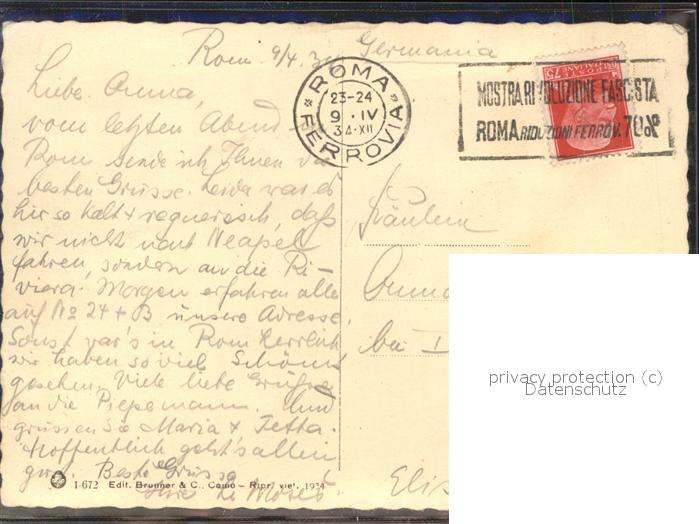 Rom 9/4. 34 Germania
Liebe Anna,
vom letzten Abend in
Rom sende ich Ihnen die
besten Grüsse. Leider war es
hier so kalt & regnerisch, daß
wir nicht nach Neapel
fahren, sondern an die Ri-
viera. Morgen erfahren alle
auf No 24 + B unsere Adresse.
Sonst war's in Rom herrlich
wir haben so viel Schönes
gesehen. Viele liebe Grüsse
an die Piepemann. Und
grüssen Sie Maria & Tetta.
Hoffentlich geht's allen
gut. Beste Grüsse
Ihre
ROMA
FERROVIA
23-24
9 · IV
34·XII
MOSTRA RIVOLUZIONE FASCISTA
ROMA RIDUZIONI FERROV. 70%
Fräulein
Anna
bei
privacy protection (c)
Datenschutz
1672 Edit. Brunner & C., Como - Ripr. viet. 1934